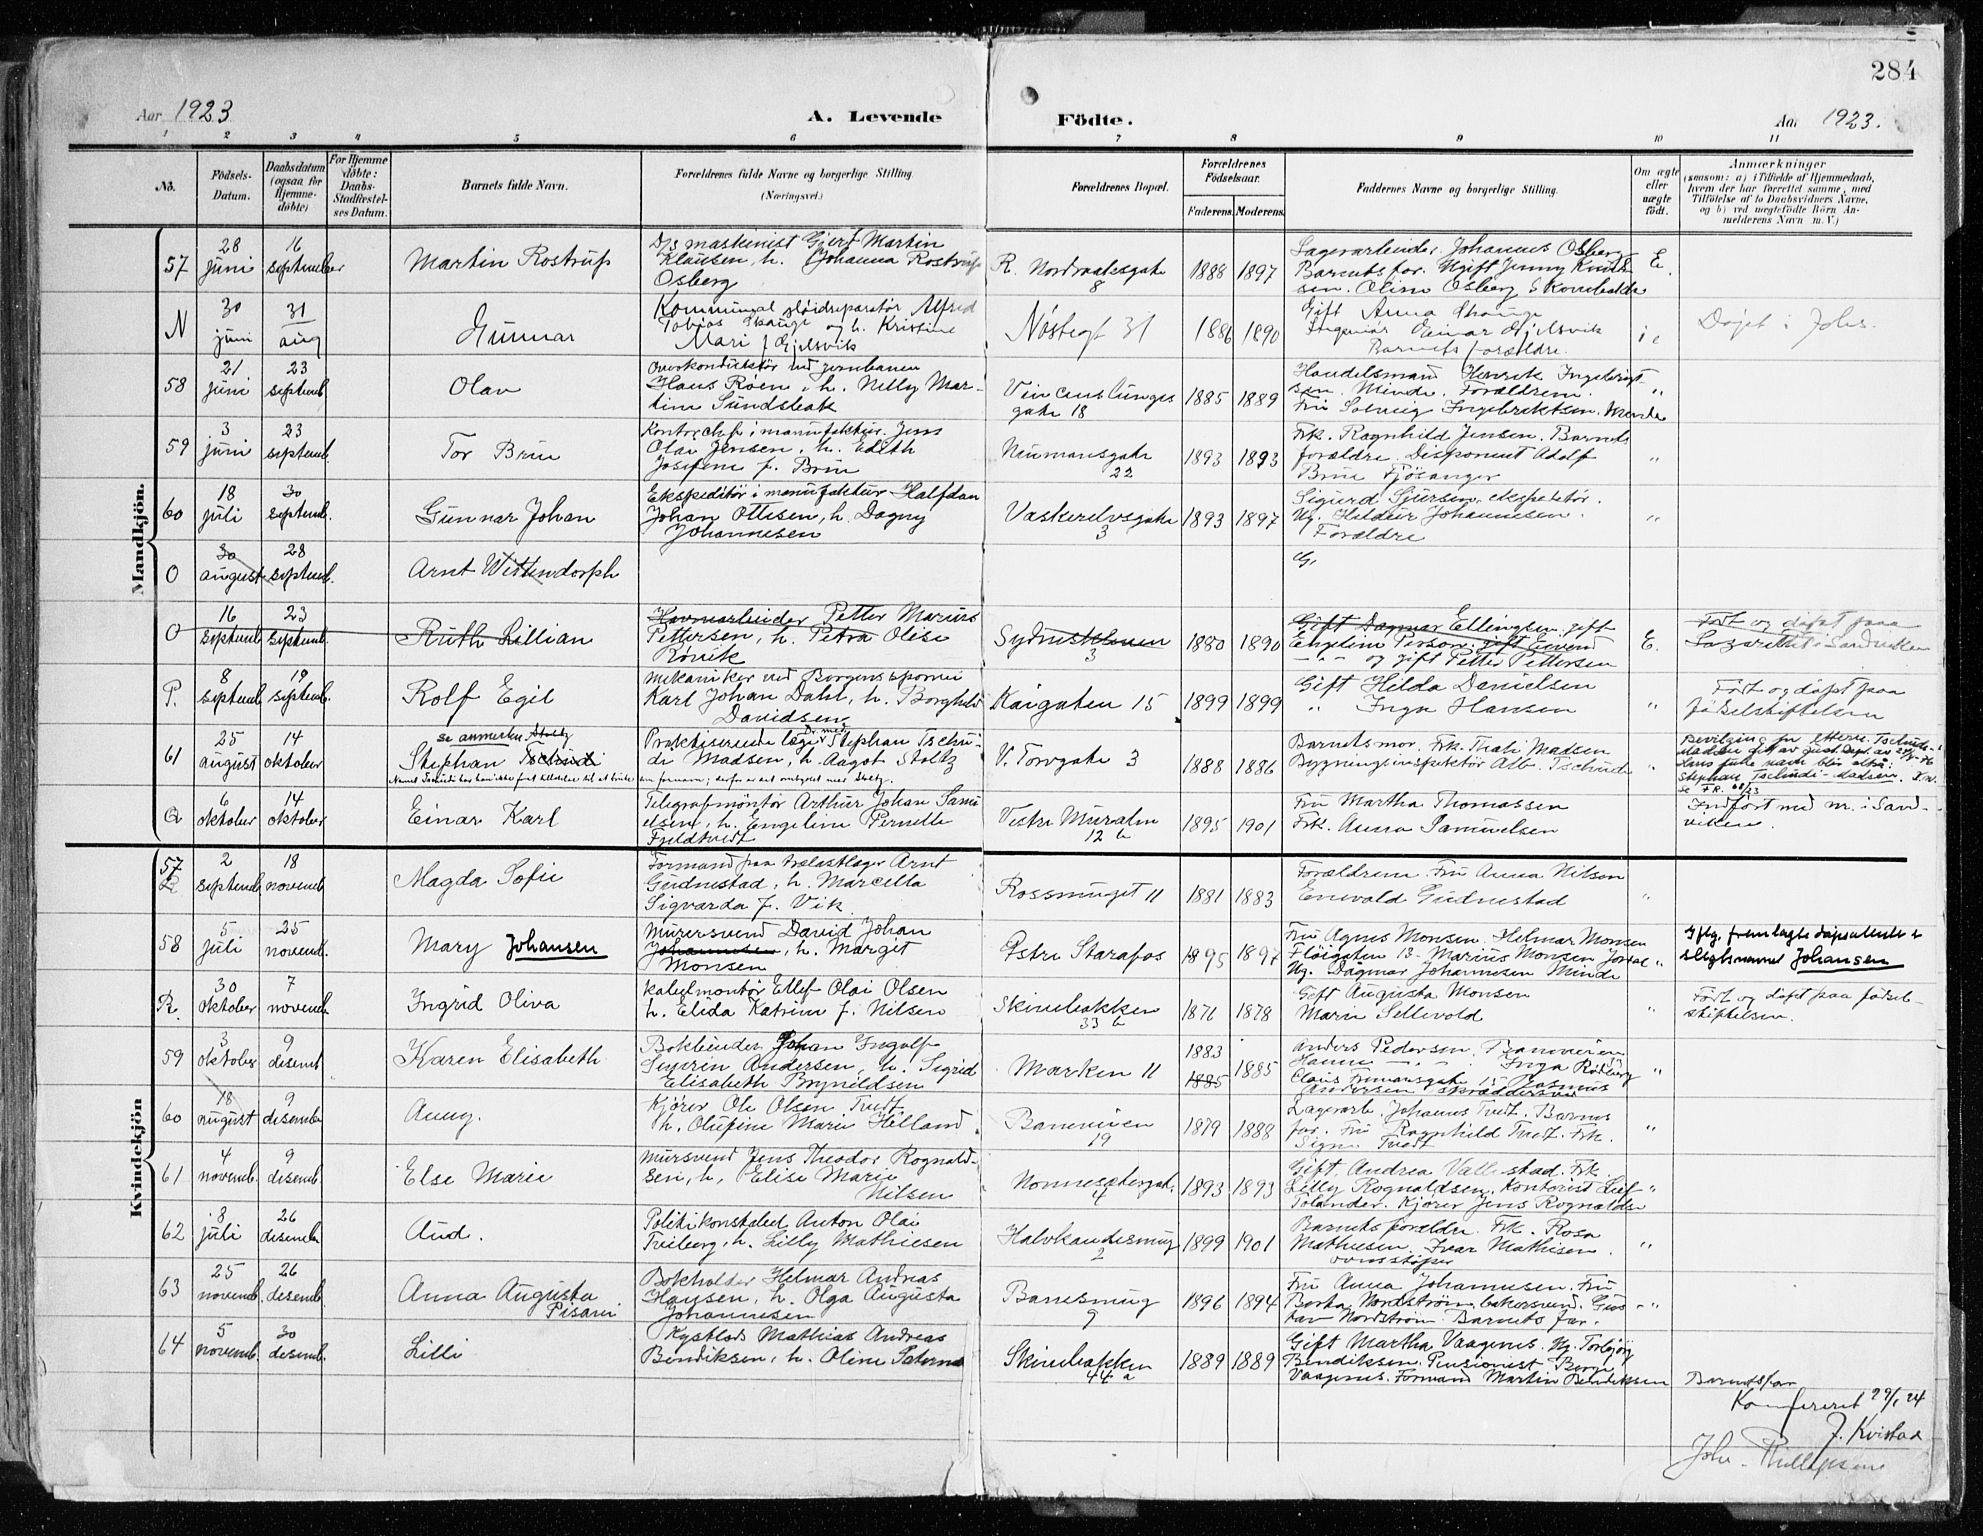 284
Aar 1923
A. Levende Födte.
Aar 1923.
1 2 3 4 5 6 7 8 9 10 11
No.
Födsels-Datum.
Daabsdatum (ogsaa for Hjemme-döbte)
For Hjemme döbte: Daabs-Stadfæstel-ses Datum.
Barnets fulde Navn.
Forældrenes fulde Navne og borgerlige Stilling. (Næringsvei.)
Forældrenes Bopæl.
Forældrenes Födselsaar.
Faderens. Moderens.
Faddernes Navne og borgerlige Stilling.
Om ægte eller uægte födt.
Anmærkninger
(saasom: a) i Tilfælde af Hjemmedaab,
hvem der har forrettet samme, med
Tilföielse af to Daabsvidners Navne,
og b) ved uægtefödte Börn An-
melderens Navn m. V.)
Mandkjön.
57 28 juni 16 september Martin Rostrup
D/s maskinist Gjert Martin
Klausen, h. Johanna Rostrup
Osberg
R. Nordraaksgate 8 1888 1897
Lagerarbeider Johannes Osberg
Barnets far. Ugift Jenny Knud-
sen. Oline Osberg
E.
N 30 juni 31 aug Gunnar
Kommunal Alfred
Tobias Skauge og h. Kristine
Mari f. Gjelsvik
Nøstegt 31 1886 1890
Gift Anna Skauge
Ingeniør Einar Gjelsvik
Barnets forældre.
Døpt i Johs.
58 21 juni 23 septemb. Olav
Overkonduktør ved jernbanen
Hans Røen, h. Nelly Mar-
tine Sundsbak
Vincens Lunges gate 18 1885 1889
Handelsmand Henrik Ingebrigt-
sen. Minde. Forældrene.
Fru Solveig Ingebriktsen. Minde
"
59 3 juni 23 septemb. Tor Brun
Kontorchef i manufaktur. Jens
Olav Jensen, h. Edith
Josefine f. Brun
Neumansgate 22 1893 1893
Frk. Ragnhild Jensen. Barnets
forældre. Disponent Adolf
Brun Fjøsanger
"
60 18 juli 30 septemb. Gunnar Johan
Ekspeditør i manufaktur Halfdan
Johan Ottesen, h. Dagny
Johannesen
Vaskerelvsgate 3 1893 1897
Sigurd Sjursen, ekspeditør.
Ug. Hildur Johannesen.
Forældre
"
O 30 august 28 septemb. Arnt Wittendorph
G.
O 16 septemb. 23 septemb. Ruth Lillian
Havnearbeider Petter Marius
Pettersen, h. Petra Olise
Rønik
Sydneskleven 3 1880 1890
Gift Dagmar Ellingsen, gift
Engeline Person, gift Eivend
— " — og gift Petter Pettersen
E.
Født og døpt paa
Lazarettet i Sandviken
P. 8 septemb. 19 septemb. Rolf Egil
Mekaniker ved Bergens sporvei
Karl Johan Dahl, h. Borghild
Davidsen
Kaigaten 15 1899 1899
Gift Hilda Danielsen
" Inga Hansen
"
Født og døpt paa
fødselstiftelsen
61 25 august 14 oktober
se anmerkn. Stoltz
Stephan Tschudi
Praktiserende læge Dr. med. Stephan Tschu-
di Madsen, h. Aagot Stoltz
Navnet Tschudi har han ikke faat tilladelse til at bruke som fornavn; derfor er det ombyttet med Stoltz.
V. Torvgate 3 1888 1886
Barnets mor. Frk. Thali Madsen
Bygningsinspektør Alb. Tschudi
"
Bevilgning for etterн. Tschudi-
Madsen gitt av Just. Dept. av
Hans fulde navn blir altså:
Stephan Tschudi-Madsen.
se F.R. 68/23
Q 6 oktober 14 oktober Einar Karl
Telegrafmontør Arthur Johan Samu
elsen, h. Engeline Pernelle
Fjeldtvedt
Vestre Muralm. 12 b 1895 1901
Fru Martha Thomassen
Frk. Anna Samuelsen
Indført med nr. i Sand-
viken.
Kvindekjön
57 2 septemb. 18 novemb. Magda Sofie
Formand paa trælastlager Arnt
Gudnestad, h. Marcella
Sigvarda f. Vik
Rossmuget 11 1881 1883
Forældrene. Fru Anna Nilsen
Enevold Gudnestad
"
58 5 juli 25 novemb. Mary Johansen
Murersvend David Johan
Johannesen, h. Marget
Monsen
Østre Skrafos 1895 1897
Fru Agnes Monsen. Helmar Monsen
Fløigaten 13. Marius Monsen
Ug. Dagmar Johannesen Minde
"
Iflg. fremlagte dåpsattest
slegtsnavnet Johansen
R. 30 oktober 7 novemb. Ingrid Oliva
Kabelmontør Ellef Olai Olsen
h. Elida Katrine f. Nilsen
Skivebakken 33 b 1871 1878
Gift Augusta Monsen
Marie Sellevold
"
Født og døpt paa fødsel-
stiftelsen.
59 3 oktober 9 desemb. Karen Elisabeth
Bokbinder Johan Ingolf
Severin Andersen, h. Sigrid
Elisabeth Brynildsen
Marken 11 1883 1885 1885
Anders Pedersen.
Hanna — " — . Inga Rødberg
Claus Frimansgate 15 Rasmus
Andersen skræddersvend
"
60 18 august 9 desemb. Anny.
Kjører Ole Olsen Tvedt
h. Olufine Marie Helland.
Baneveien 19 1879 1888
Lagerarb. Johannes Tvedt. Barnets
far. Fru Ragnhild Tvedt. Frk.
Signe Tvedt
"
61 4 novemb. 9 desemb. Else Marie
Mursvend Jens Theodor Rognald-
sen, h. Elise Marie
Nilsen
Nonnesætergat. 4 1893 1893
Gift. Andrea Vallestad. Frk.
Lilly Rognaldsen. Kontorist Leif
Tolander. Kjører Jens Rognaldsen
"
62 8 juli 26 desemb Aud.
Politikonstabel Anton Olai
Treiberg, h. Lilly Mathiesen
Halvkandesmug 2 1899 1901
Barnets forældre. Frk. Rosa
Mathiesen. Ivar Mathisen.
ovnsstøper
"
63 25 novemb. 26 desemb. Anna Augusta Pisani
Bokholder Helmar Andreas
Hansen, h. Olga Augusta
Johannesen
Banesmug 9 1896 1894
Fru Anna Johannesen. Fru
Berta Nordstrøm, bakersvend. Gus
tav Nordstrøm. Barnets far.
"
64 5 novemb. 30 desemb. Lilli
Kystlods Mathias Andreas
Bendiksen, h. Oline
Skivebakken 44 a 1889 1889
Gift Martha Vaagenes. Ug. Torbjørg
Bendiksen. Pensionist Berge
Vaagenes. Formand Martin Bendiksen
Barnets far
Konfereret 29/1 24
J. Kvistad